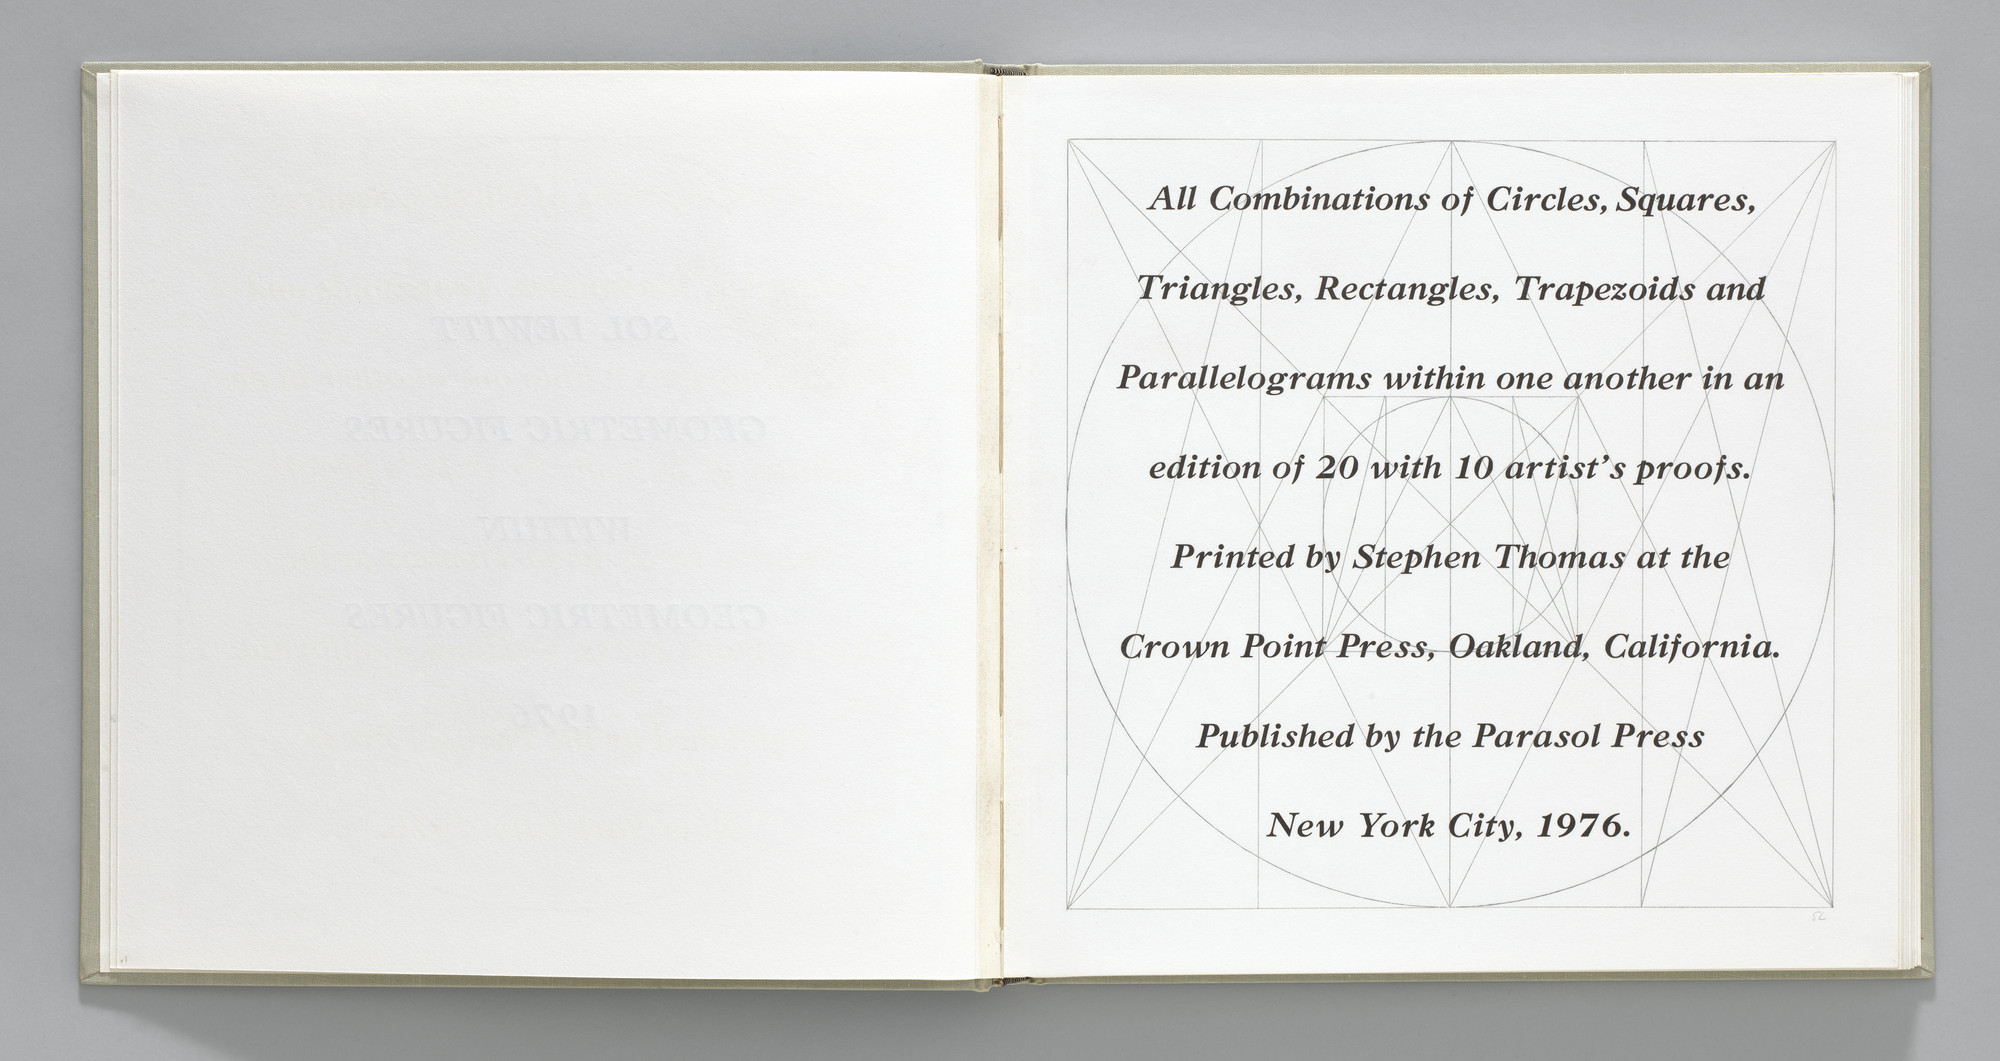 SOL LEWITT
GEOMETRIC FIGURES
WITHIN
GEOMETRIC FIGURES
1976
All Combinations of Circles, Squares,
Triangles, Rectangles, Trapezoids and
Parallelograms within one another in an
edition of 20 with 10 artist's proofs.
Printed by Stephen Thomas at the
Crown Point Press, Oakland, California.
Published by the Parasol Press
New York City, 1976.